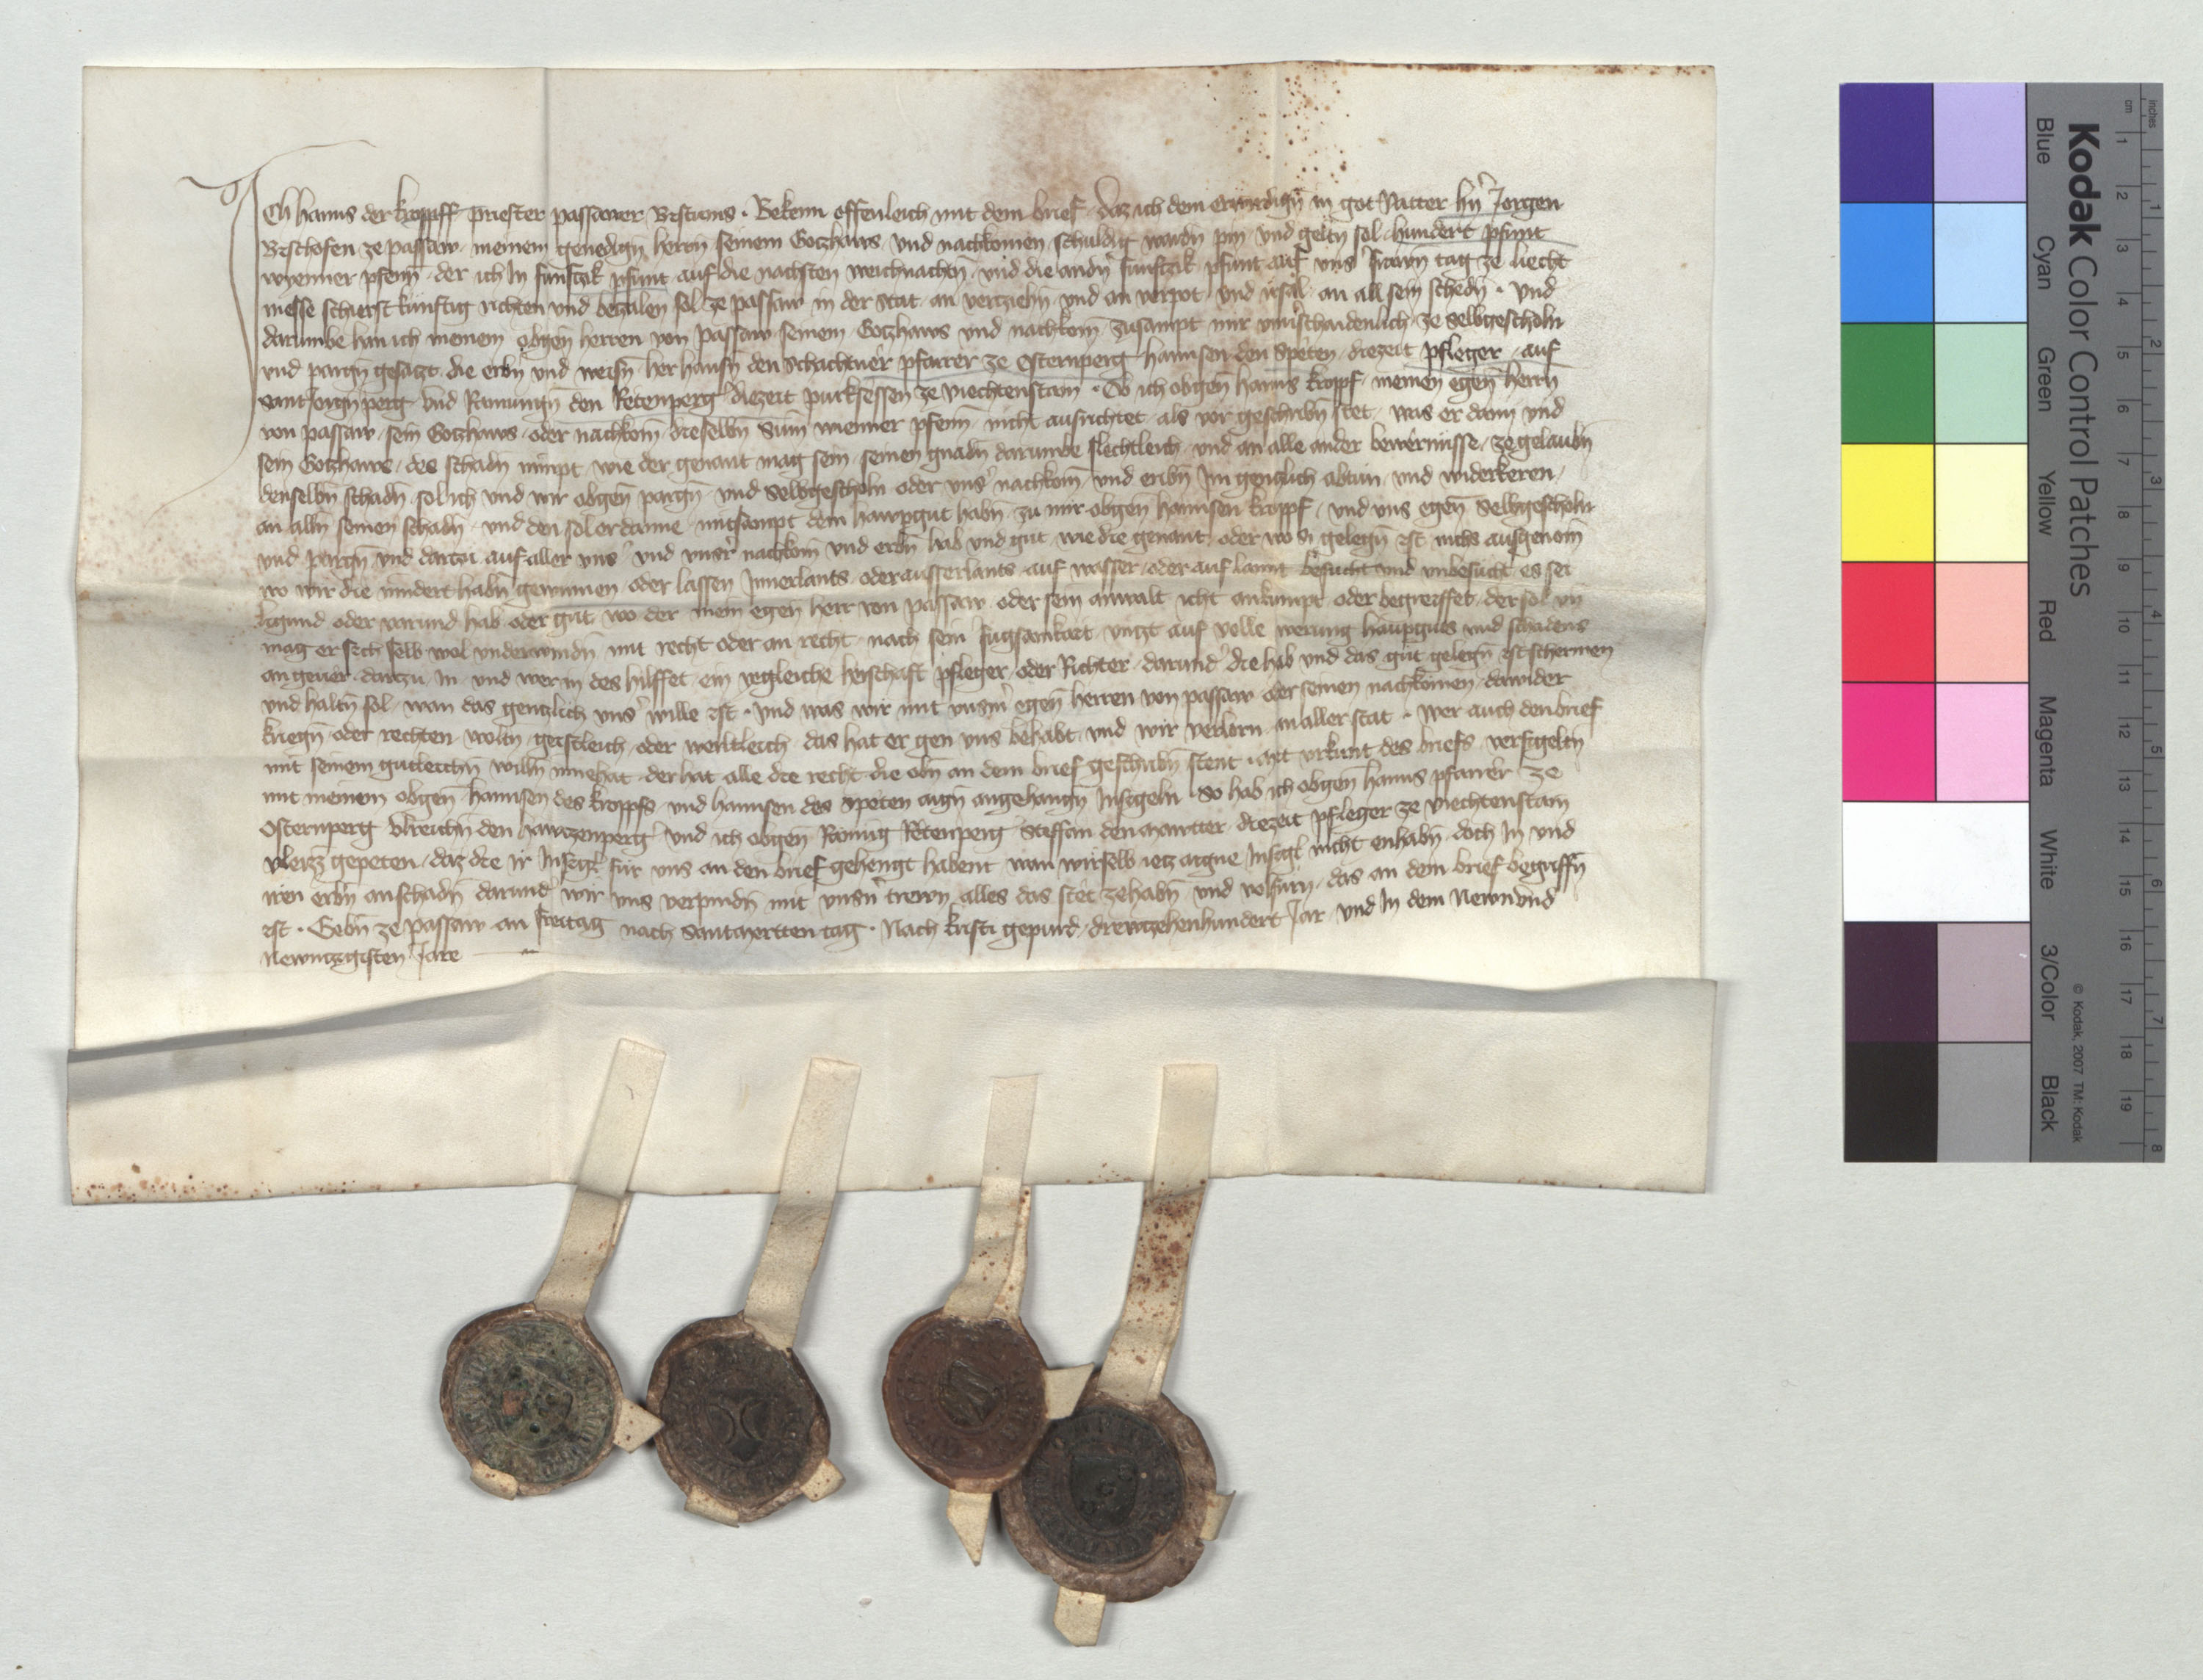 Ich Hanns der kropff priester passawer Bistums . Bekenn offenleich mit dem brief daz ich dem erwirdign in got Vatter hn Jorgen
Bischofen ze passaw meinem genedign herrn seinem Gotzhaws und nachkomen schuldig wordn pin und geltn sol hundert pfunt
wyenner pfenn der ich In funftzik pfunt auf die nachsten weichnachtn und die andn funftzik pfunt auf uns frawn tag ze liecht
messe schierst kunftig richten und betzalen sol ze passaw in der stat an vertziehn und an verpot und an all sein schedn . Und
darumbe han ich meinem obgen herren von passaw seinem Gotzhaws und nachkom zusampt mir unuschaidenlich ze selbgescholn
und pargn gesatzt die erbn und weisn her hansn den Schachtner pfarrer ze Osternperg hannsen den Speten diezeit pfleger auf
Sant Jorgn perg und Ramungn den Retenperg diezeit purksessen ze Viechtenstain . Ob ich obgen hanns kropf meinen egen herrn
von passaw sein Gotzhaws oder nachkom dieselbn Sum wienner pfenn nicht ausrichtet als vor geschribn stet was er dann und
sein Gotzhaws des schadn nimpt wie der genant mag sein seinen gnadn darumbe slechtleich und an alle ander bewernusse ze gelaubn
denselbn schadn sol ich und wir obgen pargn und selbgescholn oder uns nachkom und eribn Im gentzlich abtun und widerkeren
an alln seinen schadn und den sol er danne mitsampt dem hawpgut habn zu mir obgen hannsen kropf und uns egen Selbgescholn
und pargn und dartzu auf aller uns und unsr nachkom und erbn hab und gut wie die genant oder wo si gelegn ist nichs ausgenom
wo wir die nindert habn gewinnen oder lassen Innerlants oder ausserlants auf wasser oder auf lannt besucht und unbesucht es sei
ligund oder varund hab oder gut wo der mein egen herr von passaw oder sein anwalt icht ankumpt oder begreiffet der sol un
mag er sich selb wol underwindn mit recht oder an recht nach sein fugsamkait untzt auf volle werung haupguts und schadens
an gever dartzu In und wer in des hilffet ein yegleiche herschaft pfleger oder Richter darund die hab und das gut gelegn ist schermen
und haltn sol wan das gentzlich uns wille ist . Und was wir mit unsm egen herren von passaw oder seinen nachkomen dawider
kriegn oder rechten woltn geistleich oder weltleich das hat er gen uns behabt und wir verlorn an aller stat . Wer auch den brief
mit seinem gutleichn willn innehat der hat alle die recht die obn an dem brief geschribn stent . Mit urkunt des briefs versigeltn
mit meinem obgen hannsen des kropfs und hannsen des Speten aign angehangn Insigeln So hab ich obgen hanns pfarrer ze
Osternperg Ulreichn den und ich obgen Ramug Retenperg Steffan den diezeit pfleger ze Viechtenstain
vleizz gepeten daz die ir Insigl fur uns an den brief gehengt habent wan wir selb ietz aigne Insigl nicht enhabn doch In und
iren erbn an schadn darund wir uns verpindn mit unsn trewn alles das stet zehabn und volfurn das an dem brief begriffn
ist . Gebn ze passaw an freitag nach Sant Mertten tag . Nach kristi gepurd drewtzehenhundert Jar und In dem Newnund
Newntzgisten Jare
Kodak Color Control Patches
Blue Cyan Green Yellow Red Magenta White 3/Color Black
© Kodak, 2007 TM: Kodak
inches 1 2 3 4 5 6 7 8
cm 1 2 3 4 5 6 7 8 9 10 11 12 13 14 15 16 17 18 19